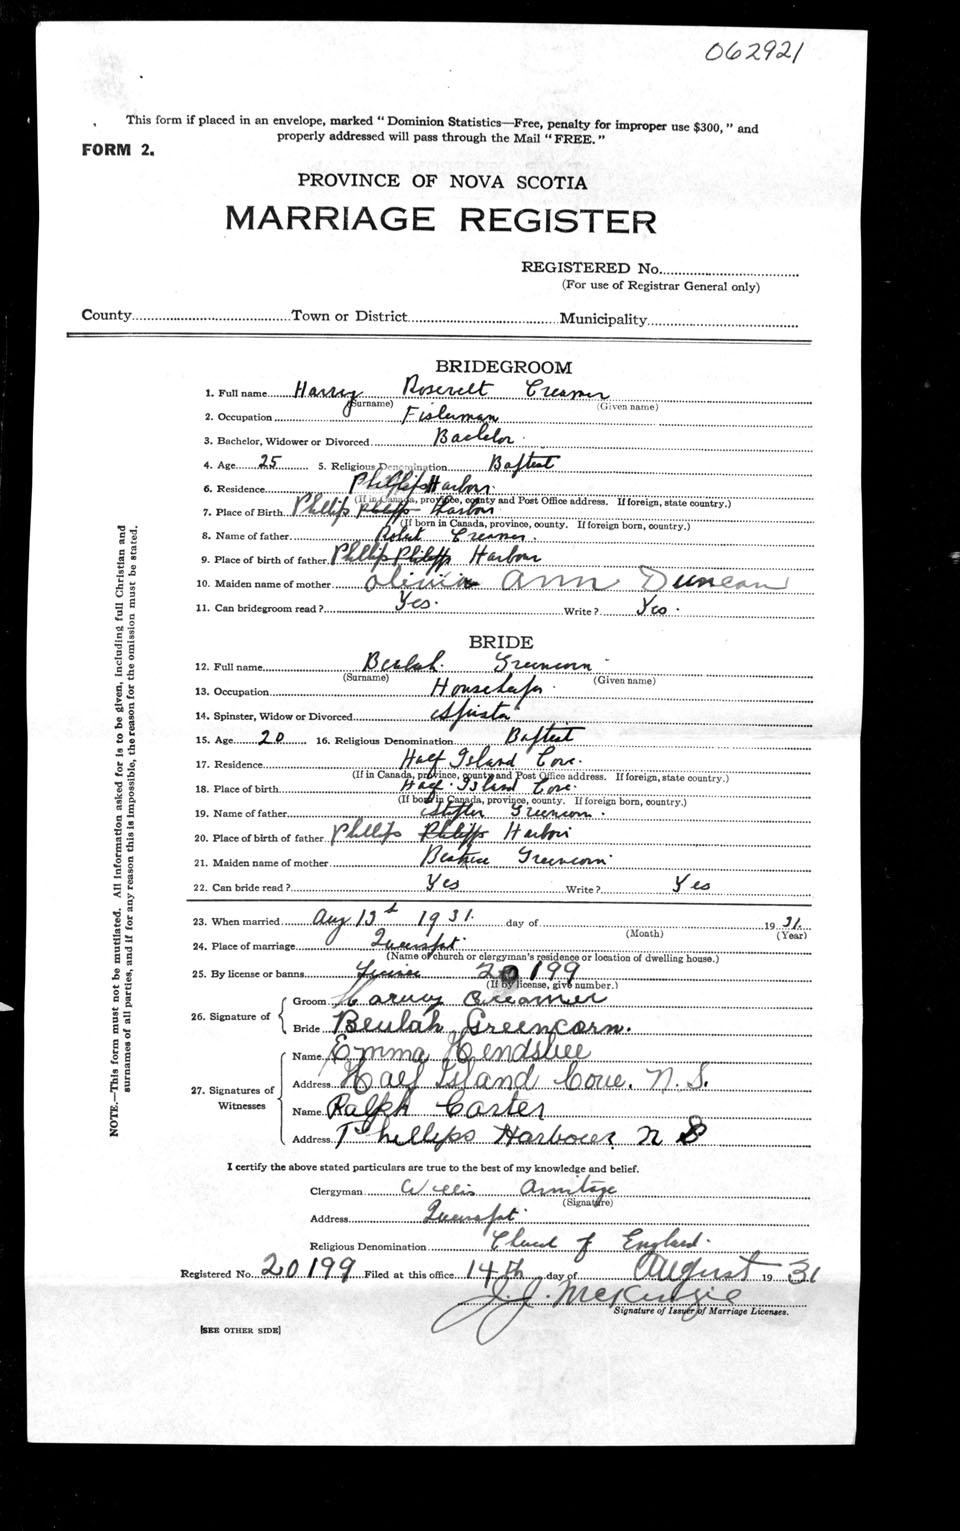 062921
This form if placed in an envelope, marked "Dominion Statistics—Free, penalty for improper use $300," and
properly addressed will pass through the Mail "FREE."
FORM 2.
PROVINCE OF NOVA SCOTIA
MARRIAGE REGISTER
REGISTERED No.
(For use of Registrar General only)
County Town or District Municipality
BRIDEGROOM
1. Full name Harry Rosevelt Creamer
(Surname) (Given name)
2. Occupation Fisherman
3. Bachelor, Widower or Divorced Bachelor
4. Age 25 5. Religious Denomination Baptist
6. Residence Phillips Harbor
(If in Canada, province, county and Post Office address. If foreign, state country.)
7. Place of Birth Phillips Philipps Harbor
(If born in Canada, province, county. If foreign born, country.)
8. Name of father Robert Creamer.
9. Place of birth of father Phillip Philipps Harbour
10. Maiden name of mother Olivia Ann Duncan
11. Can bridegroom read? Yes. Write? Yes.
BRIDE
12. Full name Beulah Greencorn
(Surname) (Given name)
13. Occupation Housekeeper
14. Spinster, Widow or Divorced Spinster
15. Age 20 16. Religious Denomination Baptist
17. Residence Half Island Cove.
(If in Canada, province, county and Post Office address. If foreign, state country.)
18. Place of birth Half Island Cove.
(If born in Canada, province, county. If foreign born, country.)
19. Name of father Greencorn.
20. Place of birth of father Phillips Philipps Harbor
21. Maiden name of mother Beatrice Greencorn
22. Can bride read? Yes Write? Yes
23. When married Aug 13th 1931. day of 19 31.
(Month) (Year)
24. Place of marriage Queensport.
(Name of church or clergyman's residence or location of dwelling house.)
25. By license or banns License 20199
(If by license, give number.)
26. Signature of
Groom Harvey Creamer
Bride Beulah Greencorn.
27. Signatures of Witnesses
Name Emma Hendsbee
Address Half Island Cove. N.S.
Name Ralph Carter
Address Phillips Harbour N S
I certify the above stated particulars are true to the best of my knowledge and belief.
Clergyman Willis Armitage
(Signature)
Address Queensport.
Religious Denomination Church of England.
Registered No. 20199 Filed at this office 14th day of August 19 31
J. J. McKenzie
Signature of Issuer of Marriage Licenses.
[SEE OTHER SIDE]
NOTE.—This form must not be mutilated. All information asked for is to be given, including full Christian and
surnames of all parties, and if for any reason this is impossible, the reason for the omission must be stated.